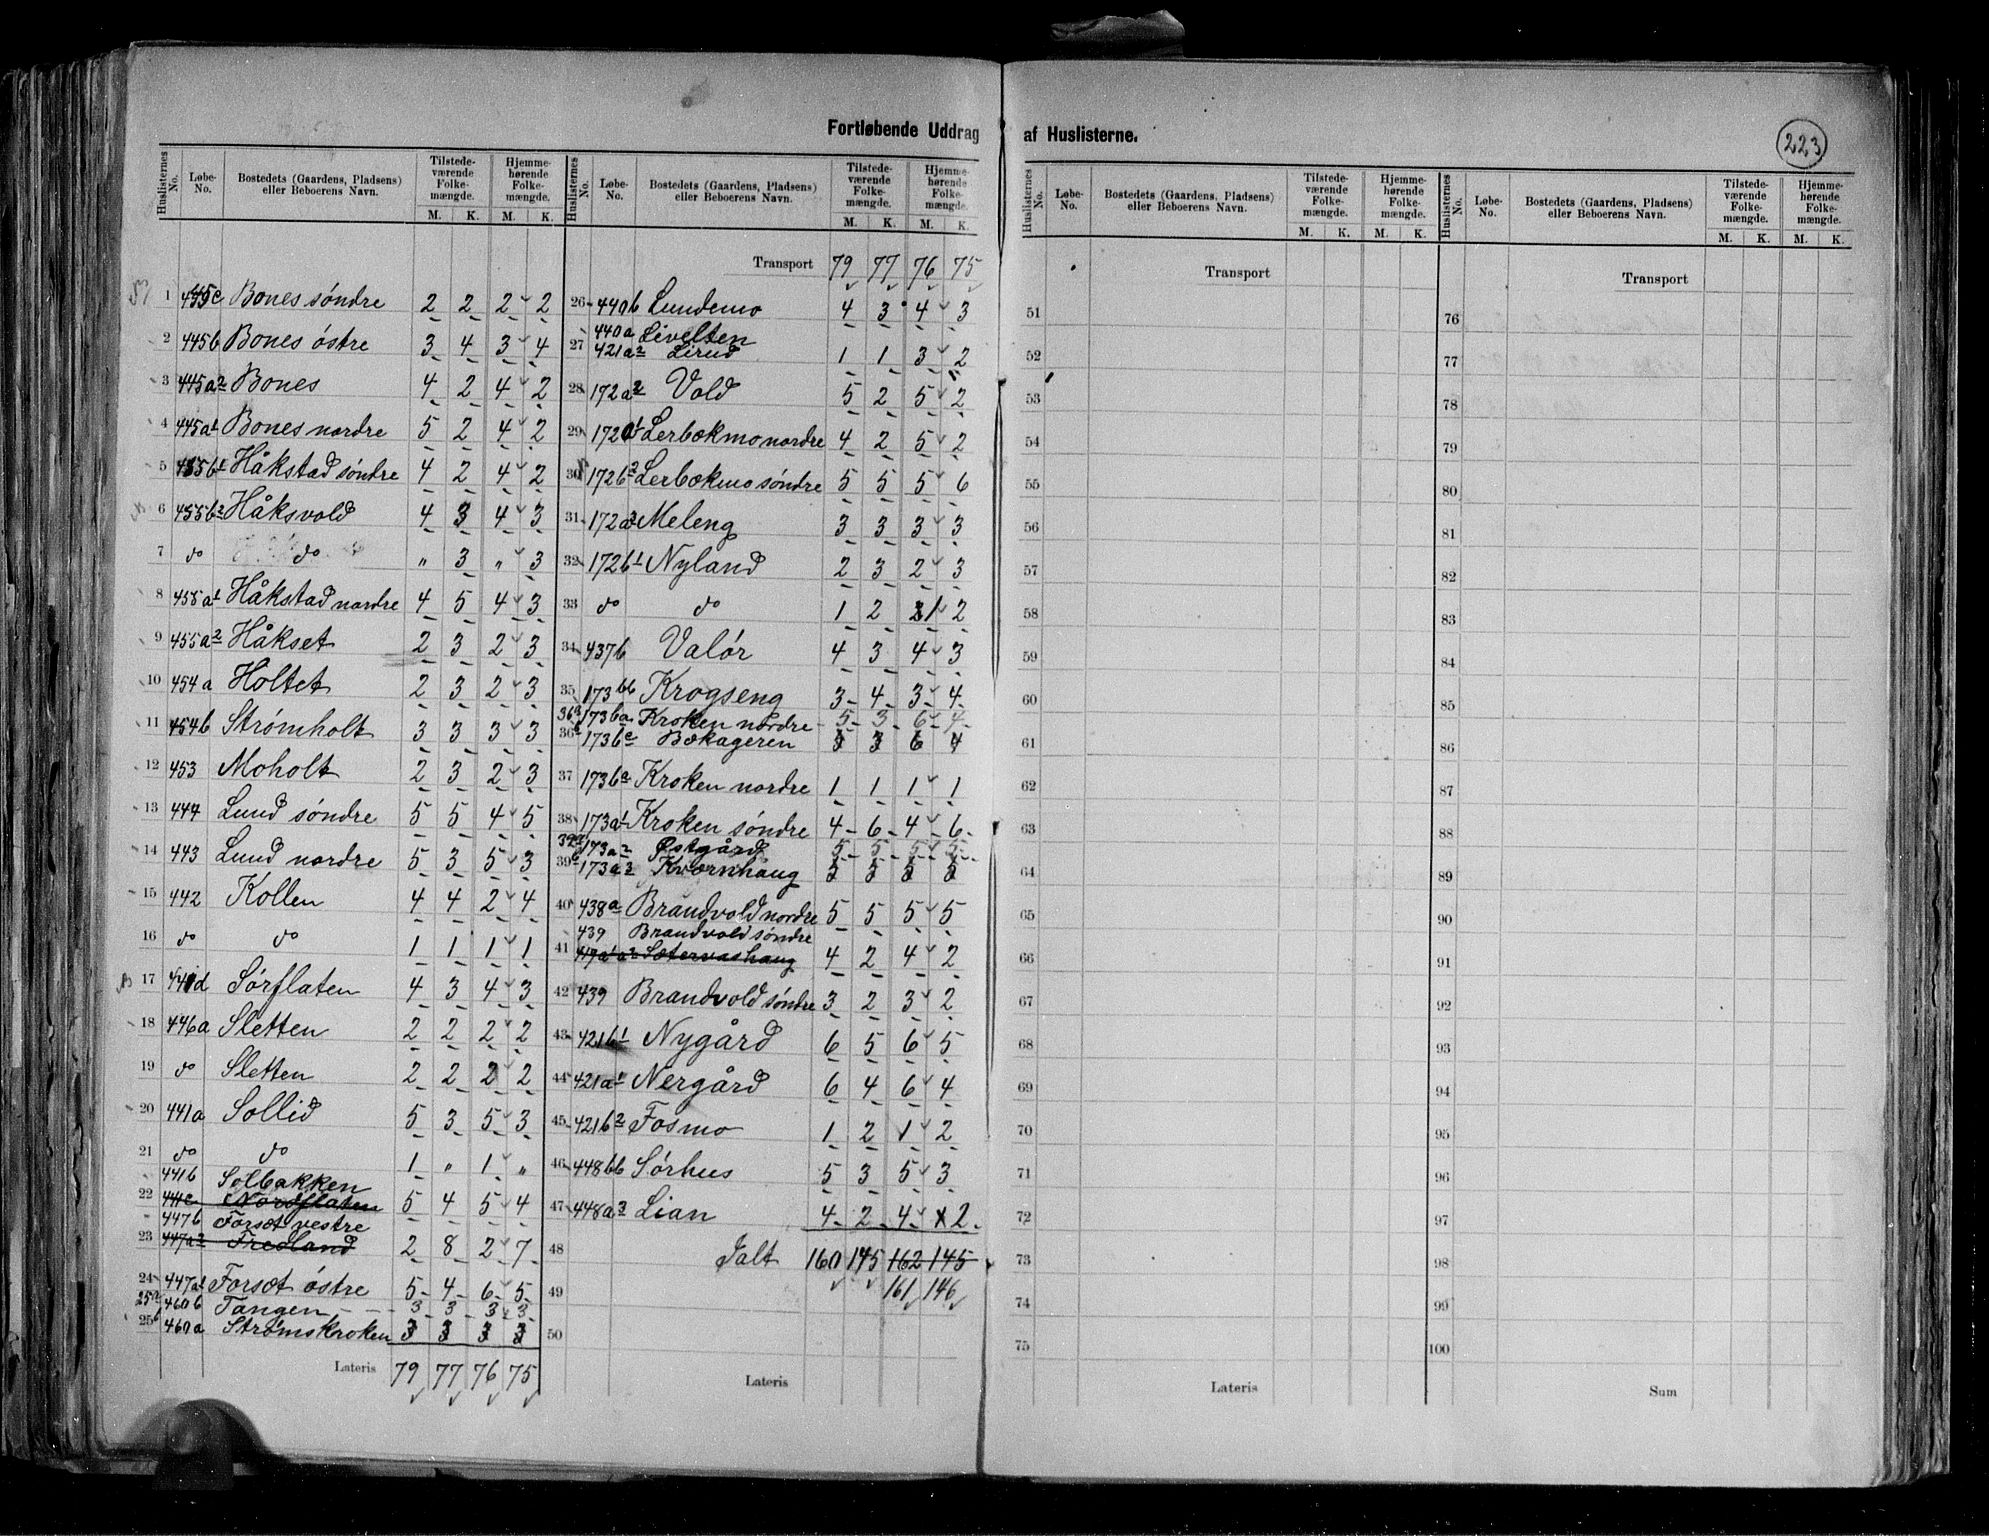 Fortløbende Uddrag af Huslisterne.
223
Huslisternes No. Løbe-No. Bostedets (Gaardens, Pladsens) eller Beboerens Navn. Tilstedeværende Folkemængde. M. K. Hjemmehørende Folkemængde. M. K.
1 445c Bones søndre 2 2 2 2
2 445b Bones østre 3 4 3 4
3 445a2 Bones 4 2 4 2
4 445a1 Bones nordre 5 2 4 2
5 455b1 Håkstad søndre 4 2 4 2
6 455b2 Håksvold 4 3 4 3
7 do do " 3 " 3
8 455a1 Håkstad nordre 4 5 4 3
9 455a2 Håkset 2 3 2 3
10 454a Holtet 2 3 2 3
11 454b Strømholt 3 3 3 3
12 453 Moholt 2 3 2 3
13 444 Lund søndre 5 5 4 5
14 443 Lund nordre 5 3 5 3
15 442 Kollen 4 4 2 4
16 do do 1 1 1 1
17 441d Sørflaten 4 3 4 3
18 446a Sletten 2 2 2 2
19 do Sletten 2 2 2 2
20 441a Sollid 5 3 5 3
21 do do 1 " 1 "
441b Solbakken
22 441c Nordflaten 5 4 5 4
447b Forsæt vestre
23 447a2 Fredland 2 8 2 7
24 447a1 Forsæt østre 5 4 6 5
25a 460b Tangen 3 3 3 3
25b 460a Strømskroken 3 3 3 3
Lateris 79 77 76 75
Huslisternes No. Løbe-No. Bostedets (Gaardens, Pladsens) eller Beboerens Navn. Tilstedeværende Folkemængde. M. K. Hjemmehørende Folkemængde. M. K.
Transport 79 77 76 75
26 440b Lundemo 4 3 4 3
440a Livelten
27 421a2 Lirud 1 1 3 2
28 172a2 Vold 5 2 5 2
29 172a1 Lerbækmo nordre 4 2 5 2
30 172b2 Lerbækmo søndre 5 5 5 6
31 172a3 Meleng 3 3 3 3
32 172b1 Nyland 2 3 2 3
33 do do 1 2 1 2
34 437b Valør 4 3 4 3
35 173bb Krogseng 3 4 3 4
36a 173ba Kroken nordre 5 3 6 4
36b 173bc Bækageren 3 3 6 4
37 173ba Kroken nordre 1 1 1 1
38 173a1 Kroken søndre 4 6 4 6
39a 173a2 Østgård 5 5 5 5
39b 173a3 Kværnhaug
40 438a Brandvold nordre 5 5 5 5
439 Brandvold søndre
41 417a1a2 Sætervashaug 4 2 4 2
42 439 Brandvold søndre 3 2 3 2
43 421b1 Nygård 6 5 6 5
44 421a1 Nergård 6 4 6 4
45 421b2 Fosmo 1 2 1 2
46 448bb Sørhus 5 3 5 3
47 448a3 Lian 4 2 4 2
48 Ialt 160 145 162 145
49 161 146
50
Lateris
Huslisternes No. Løbe-No. Bostedets (Gaardens, Pladsens) eller Beboerens Navn. Tilstedeværende Folkemængde. M. K. Hjemmehørende Folkemængde. M. K.
Transport
51
52
53
54
55
56
57
58
59
60
61
62
63
64
65
66
67
68
69
70
71
72
73
74
75
Lateris
Huslisternes No. Løbe-No. Bostedets (Gaardens, Pladsens) eller Beboerens Navn. Tilstedeværende Folkemængde. M. K. Hjemmehørende Folkemængde. M. K.
Transport
76
77
78
79
80
81
82
83
84
85
86
87
88
89
90
91
92
93
94
95
96
97
98
99
100
Sum